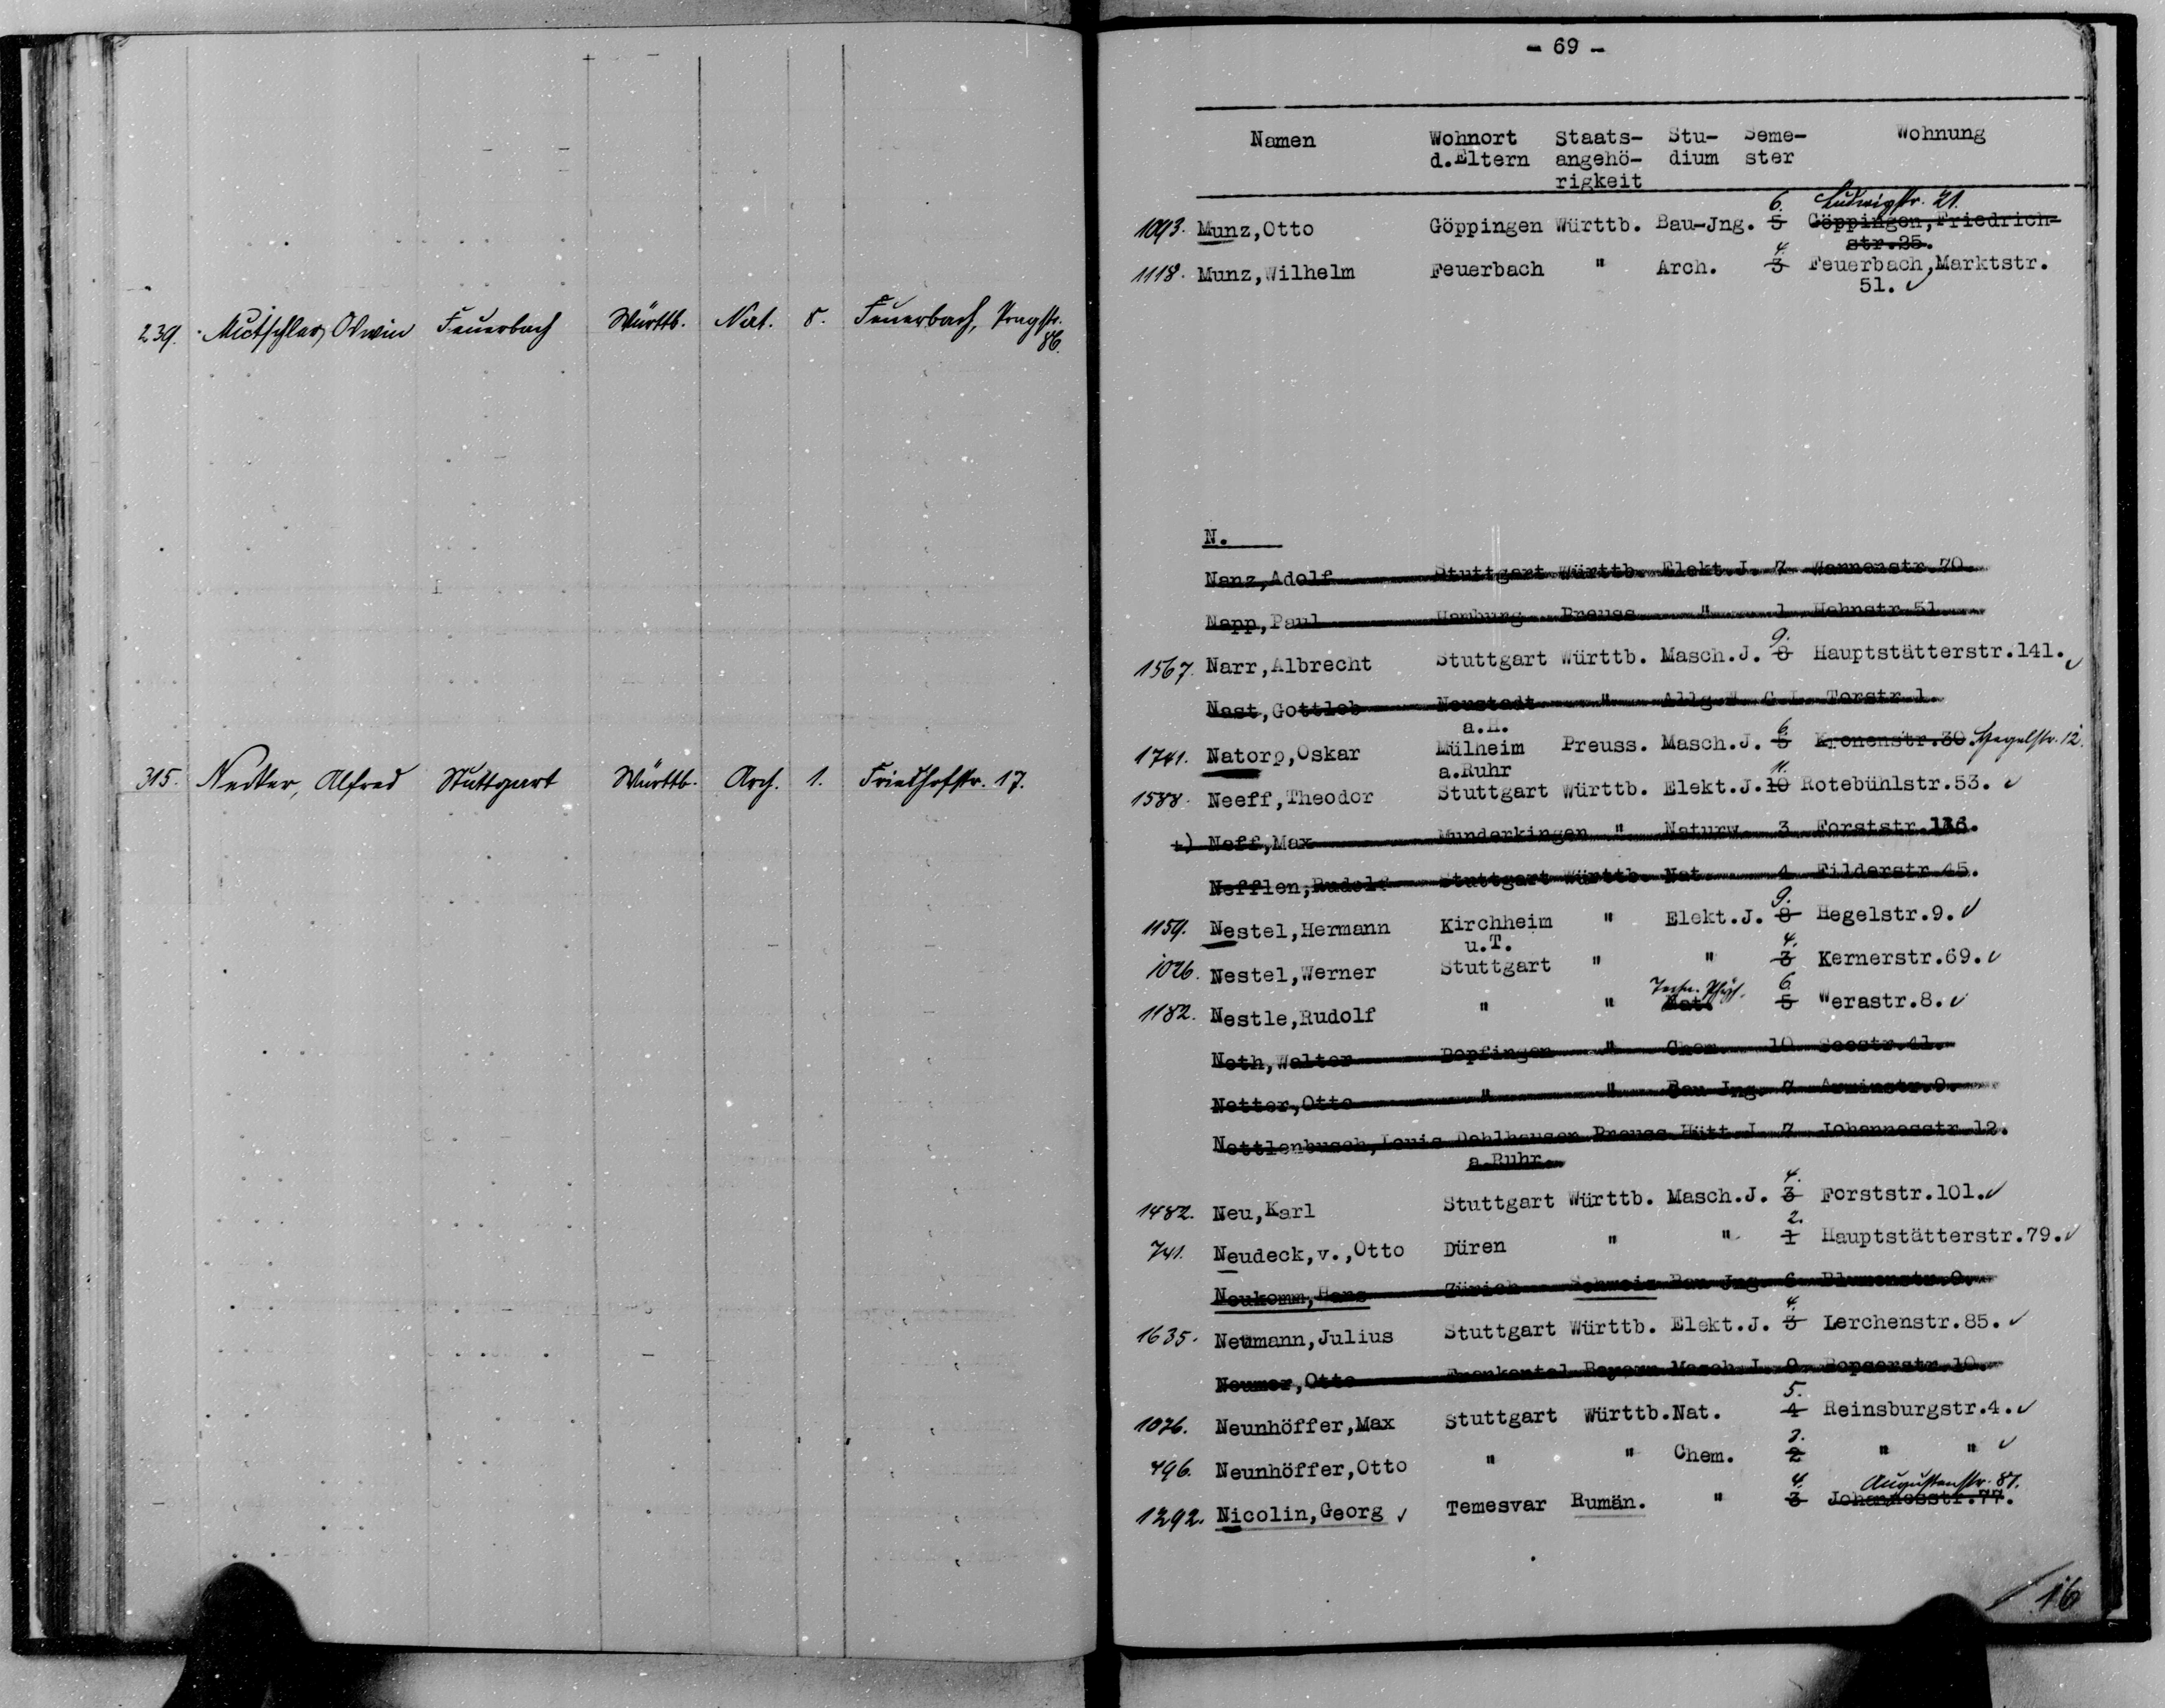 239. Mutschler, Odwin Feuerbach Württb. Nat. 8. Feuerbach, Pragstr.
86.
315. Nedker, Alfred Stuttgart Württb. Arch. 1. Friedhofstr. 17.
- 69 -
Namen Wohnort Staats- Stu- Seme- Wohnung
d.Eltern angehö- dium ster
rigkeit
6. Ludwigstr. 21.
1093. Munz,Otto Göppingen Württb. Bau-Jng. 5 Göppingen,Friedrich-
str.25.
4.
1118. Munz,Wilhelm Feuerbach " Arch. 3 Feuerbach,Marktstr.
51.
N.
Nanz,Adolf Stuttgart Württb. Elekt.J. 7 Wannenstr.70.
Napp,Paul Homburg Preuss " 1 Hohnstr.51.
9.
1567. Narr,Albrecht Stuttgart Württb. Masch.J. 8 Hauptstätterstr.141.
Nast,Gottlob Neustadt " Allg. Torstr.1.
a.H. 6.
1741. Natorp,Oskar Mülheim Preuss. Masch.J. 5 Kronenstr.30. Hegelstr. 12.
a.Ruhr 11.
1588. Neeff,Theodor Stuttgart Württb. Elekt.J. 10 Rotebühlstr.53.
+) Neff,Max Munderkingen " Naturw. 3 Forststr.116.
Nefflen,Rudolf Stuttgart Württb. Nat. 4 Filderstr.45.
9.
1159. Nestel,Hermann Kirchheim " Elekt.J. 8 Hegelstr.9.
u.T. 4.
1026. Nestel,Werner Stuttgart " " 3 Kernerstr.69.
Techn. Phys. 6
1182. Nestle,Rudolf " " Nat. 5 Werastr.8.
Neth,Walter Bopfingen " Chem. 10 Seestr.41.
Netter,Otto " " Bau Jng. 7 Arminstr.9.
Nettlenbusch,Louis Dahlhausen Preuss Hütt.J. 7 Johannesstr.12.
a.Ruhr.
4.
1482. Neu,Karl Stuttgart Württb. Masch.J. 3 Forststr.101.
2.
741. Neudeck,v.,Otto Düren " " 1 Hauptstätterstr.79.
Neukomm,Hans Zürich Schweiz Bau Jng. 6 Blumenstr.9.
4.
1635. Neumann,Julius Stuttgart Württb. Elekt.J. 3 Lerchenstr.85.
Neumer,Otto Frankental Bayern Masch.J. 9 Bopserstr.10.
5.
1076. Neunhöffer,Max Stuttgart Württb.Nat. 4 Reinsburgstr.4.
3.
796. Neunhöffer,Otto " " Chem. 2 " "
4. Augustenstr. 87.
1292. Nicolin,Georg Temesvar Rumän. " 3 Johannesstr.77.
16